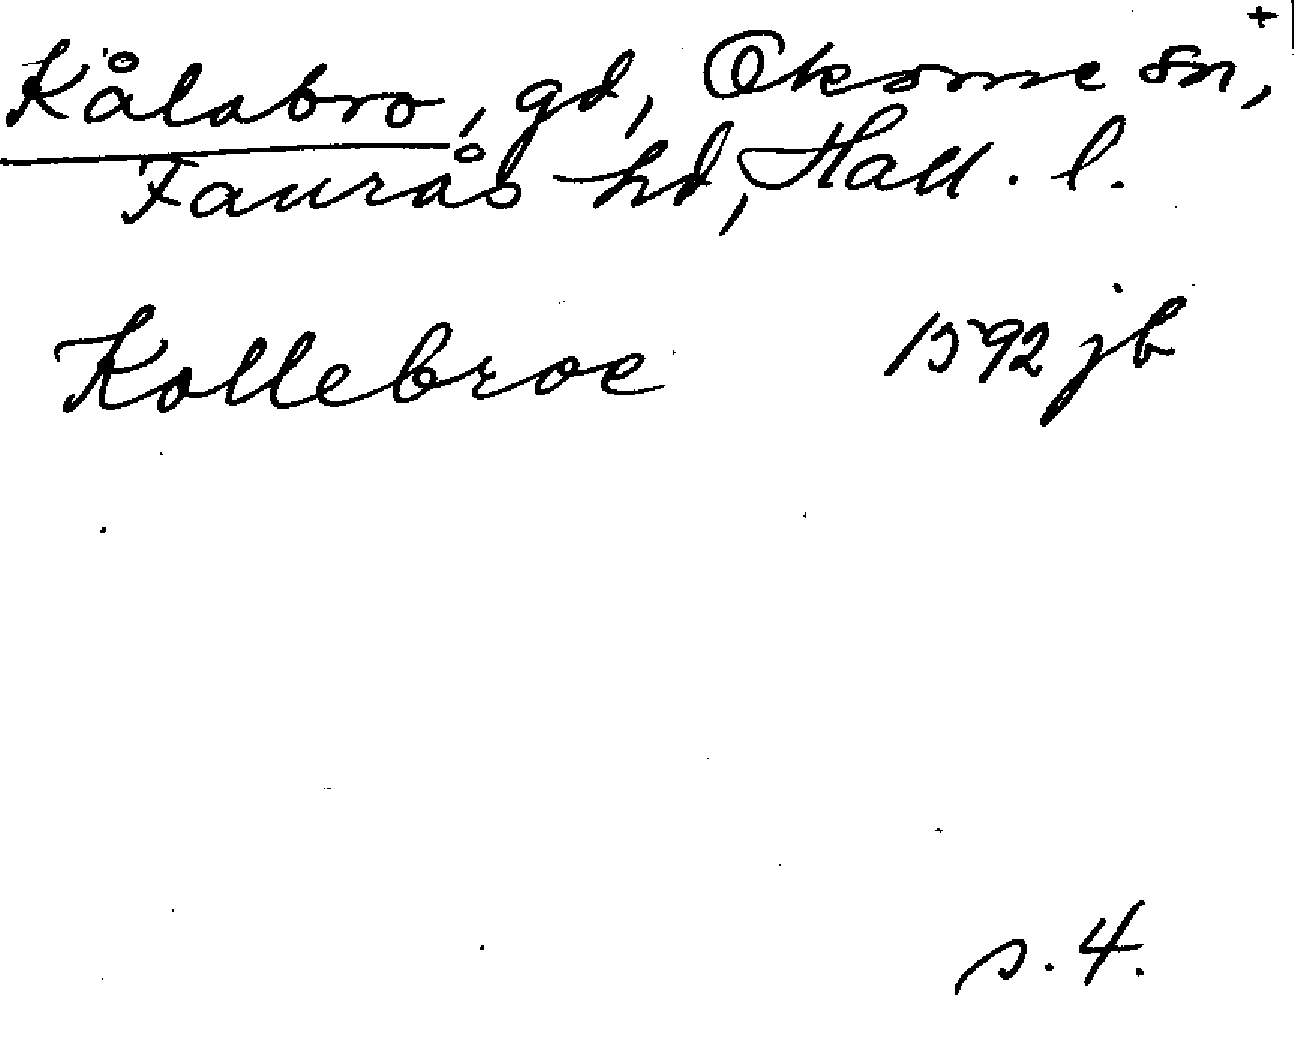 +
Kålabro, gd, Okome sn,
Faurås hd, Hall. l.
Kollebroe 1592 jb
s. 4.